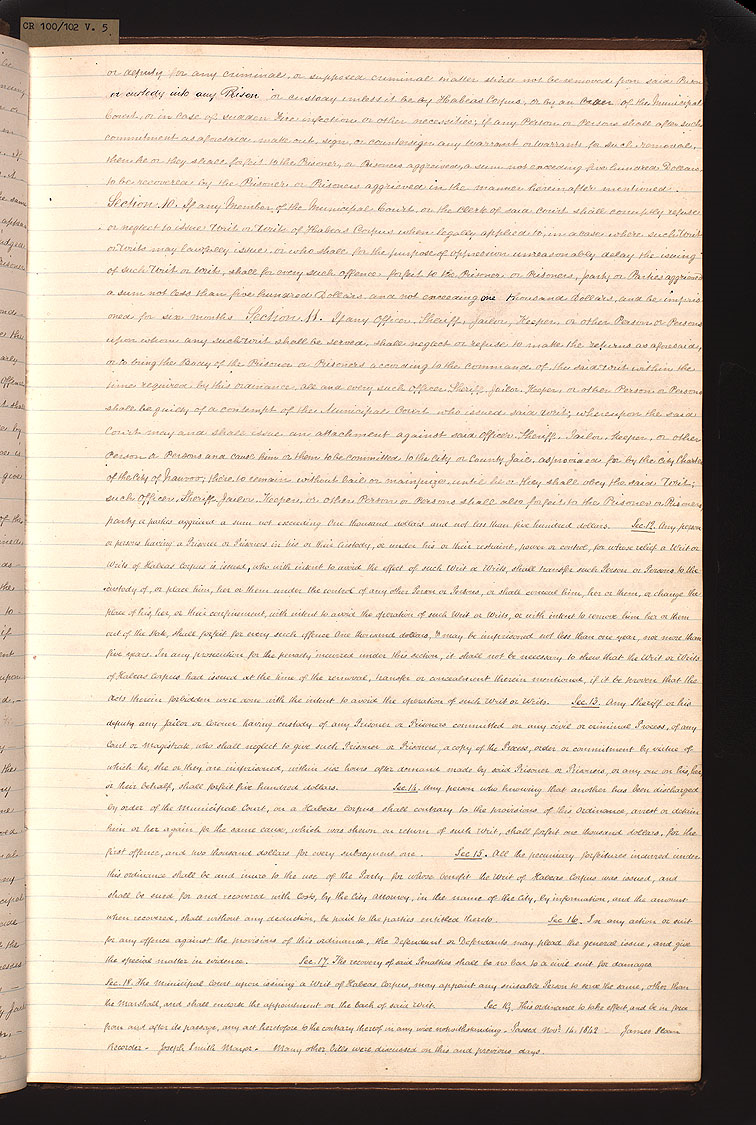 CR 100/102 V. 5
or deputy for any criminal, or supposed criminal matter shall not be removed from said Prison
or custody into any Prison or custody unless it be by Habeas Corpus, or by an Order of the Municipal
Court, or in case of sudden Fire infection or other necessities; if any Person or Persons shall after such
commitment as aforesaid make out, sign, or countersign any warrant or warrants for such removal,
then he or they shall forfeit to the Prisoner, or Prisoners aggrieved, a sum not exceeding five hundred Dollars,
to be recovered by the Prisoner or Prisoners aggrieved in the manner herein after mentioned.
Section 10. If any Member, of the Municipal Court, or the Clerk of said Court shall corruptly refuse
or neglect to issue Writ or Writs of Habeas Corpus when legally applied to, in a case where such Writ
or Writs may lawfully issue, or who shall for the purpose of oppression unreasonably delay the issuing
of such Writ or Writs, shall for every such offence forfeit to the Prisoner or Prisoners, party or Parties aggrieved
a sum not less than five hundred Dollars and not exceeding one thousand Dollars, and be impris
oned for six months Section 11. If any Officer, Sheriff, Jailor, Keeper, or other Person or Persons
upon whom any such Writ shall be served, shall neglect or refuse to make the returns as aforesaid,
or to bring the Body of the Prisoner or Prisoners according to the command of the said Writ within the
time required by this ordinance, all and every such officer, Sheriff, Jailor, Keeper, or other Person or Persons
shall be guilty of a contempt of the Municipal Court who issued said Writ; whereupon the said
Court may and shall issue an attachment against said officer, Sheriff, Jailor, Keeper, or other
Person or Persons and cause him or them to be committed to the City or County Jail, as provided for by the City Charter
of the City of Nauvoo, there to remain without bail or mainprize, until he or they shall obey the said Writ;
such Officer, Sheriff, Jailor, Keeper, or other Person or Persons shall also forfeit to the Prisoner or Prisoners,
party or parties aggrieved a sum not exceeding One thousand dollars and not less than five hundred dollars. Sec 12. Any person
or persons having a Prisoner or Prisoners in his or their Custody, or under his or their restraint, power or control, for whose relief a Writ or
Writs of Habeas Corpus is issued, who with intent to avoid the effect of such Writ or Writs, shall transfer such Person or Persons to the
custody of, or place him, her or them under the control of any other Person or Persons, or shall conceal him, her or them, or change the
place of his, her, or their confinement, with intent to avoid the operation of such Writ or Writs, or with intent to remove him her or them
out of the State, shall forfeit for every such offence One thousand dollars, & may be imprisoned not less than one year, nor more than
five years. In any prosecution for the penalty incurred under this section, it shall not be necessary to shew that the Writ or Writs
of Habeas Corpus had issued at the time of the removal, transfer or concealment therein mentioned, if it be proven that the
Acts therein forbidden were done with the intent to avoid the operation of such Writ or Writs. Sec. 13. Any Sheriff or his
deputy any Jailor or Coroner having custody of any Prisoner or Prisoners committed on any civil or criminal Process, of any
Court or Magistrate, who shall neglect to give such Prisoner or Prisoners, a copy of the Process, order or commitment by virtue of
which he, she or they are imprisoned, within six hours after demand made by said Prisoner or Prisoners, or any one on his, her
or their behalf, shall forfeit five hundred dollars. Sec. 14. Any person who knowing that another has been discharged
by order of the Municipal Court, on a Habeas Corpus shall contrary to the provisions of this Ordinance, arrest or detain
him or her again for the same cause, which was shewn on return of such Writ, shall forfeit one thousand dollars, for the
first offence, and two thousand dollars for every subsequent one. Sec 15. All the pecuniary forfeitures incurred under
this ordinance shall be and inure to the use of the Party for whose benefit the Writ of Habeas Corpus was issued, and
shall be sued for and recovered with Costs, by the City Attorney, in the name of the City, by information, and the amount
when recovered, shall without any deduction, be paid to the parties entitled thereto. Sec 16. In any action or suit
for any offence against the provisions of this ordinance, the Defendant or Defendants may plead the general issue, and give
the special matter in evidence. Sec. 17. The recovery of said Penalties shall be no bar to a civil suit for damages
Sec. 18. The Municipal Court upon issuing a Writ of Habeas Corpus, may appoint any suitable Person to serve the same, other than
the Marshall, and shall endorse the appointment on the back of said Writ. Sec 19. This ordinance to take effect, and be in force
from and after its passage, any act heretofore to the contrary thereof in any wise notwithstanding. Passed Novr. 14. 1842 — James Sloan
Recorder — Joseph Smith Mayor — Many other bills were discussed on this and previous days.